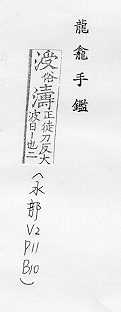 龍龕手鑑
俗濤正徒刀反大
波曰丨也二
(水部
V2
P11
B10)